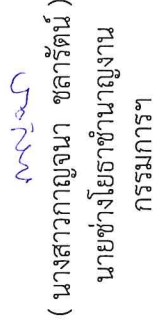 ( นางสาวกาญจนา ชลารัตน์ )
นายช่างโยธาชำนาญงาน
กรรมการฯ